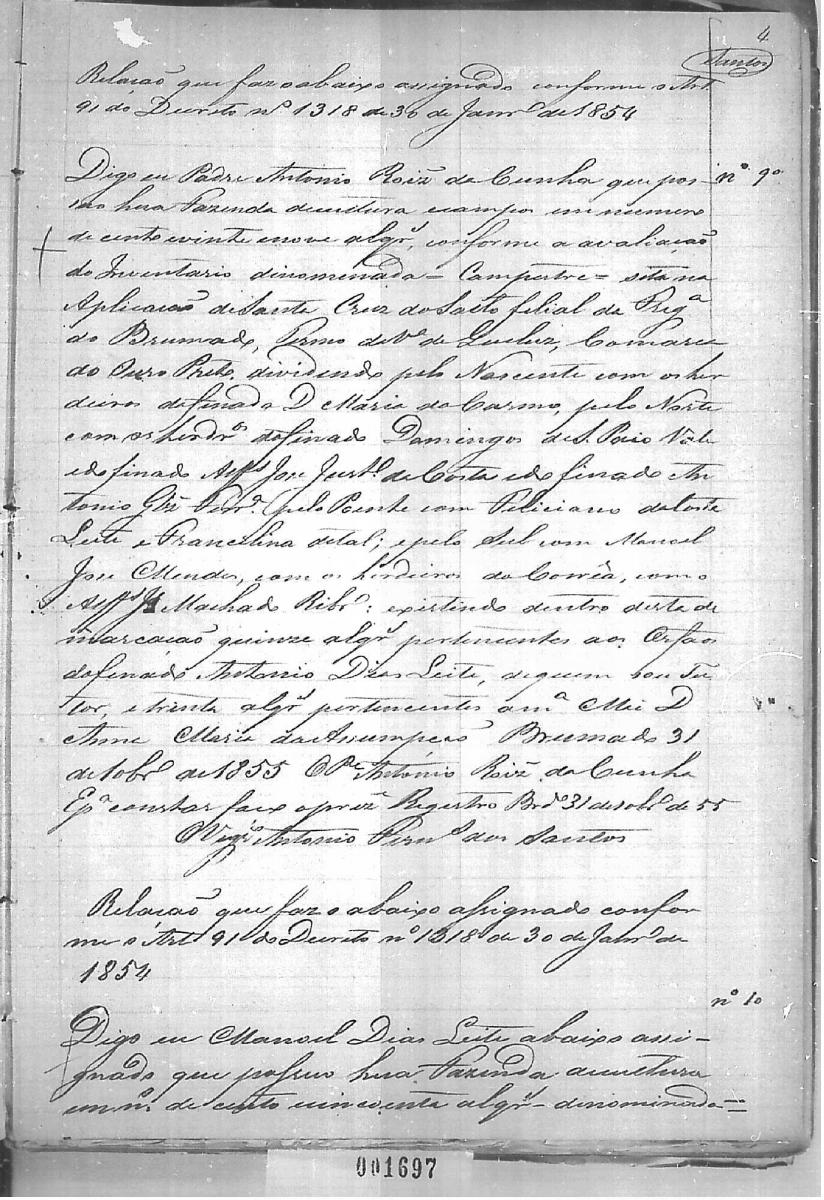 4
Santos
Relacaõ que faz o abaixo assignado conforme o Art
91 do Decreto nº 1318 de 30 de Janrº de 1854
Digo eu Padre Antonio Roiz̃ da Cunha que pos- nº 9º
suo hua Fazenda decultura ecampos em numero
de cento evinte enove alqrs, conforme a avaliaçaõ
do Inventario dinomenada = Campestre = sita na
Aplicacaõ de Santa Cruz do Salto filial da Fregª
do Brumado, Termo da Vª de Queluz, Comarca
do Ouro Preto, dividindo pelo Nascente com os her
deiros dafinada D Maria do Carmo, pelo Norte
com os herdrºs dofinado Domingos de S. Paio Vale
edo finado Alfs Jose Justº da Costa edo finado An
tonio Glz̃ Ferrª, pelo Poente com Feliciano da Costa
Leite e Francelina detal; e pelo Sul com Manoel
Jose Mendes, com os herdeiros do Corrêa, com o
Alfs Jº Machado Ribrº: existindo dentro desta de
marcacaõ quinze alqrs pertencentes aos Orfaos
dofinado Antonio Dias Leite, dequem sou Tu
tor, e trinta alqrs pertencentes a mª Mãi D
Anna Maria da Assumpcaõ Brumado 31
de 1obrº de 1855 O Pe Antonio Roiz̃ da Cunha
E pª constar faço o prez̃ Registro Brdº 31 de 1obrº de 55
O Vigrº Antonio Fernds dos Santos
Relacaõ que faz o abaixo assignado confor
me o Art 91 do Decreto nº 1318 de 30 de Janrº de
1854
nº 10
Digo eu Manoel Dias Leite abaixo assi-
gnado que possuo hua Fazenda decultura
em nº de cento ecincoenta alqrs - denominada =
001697